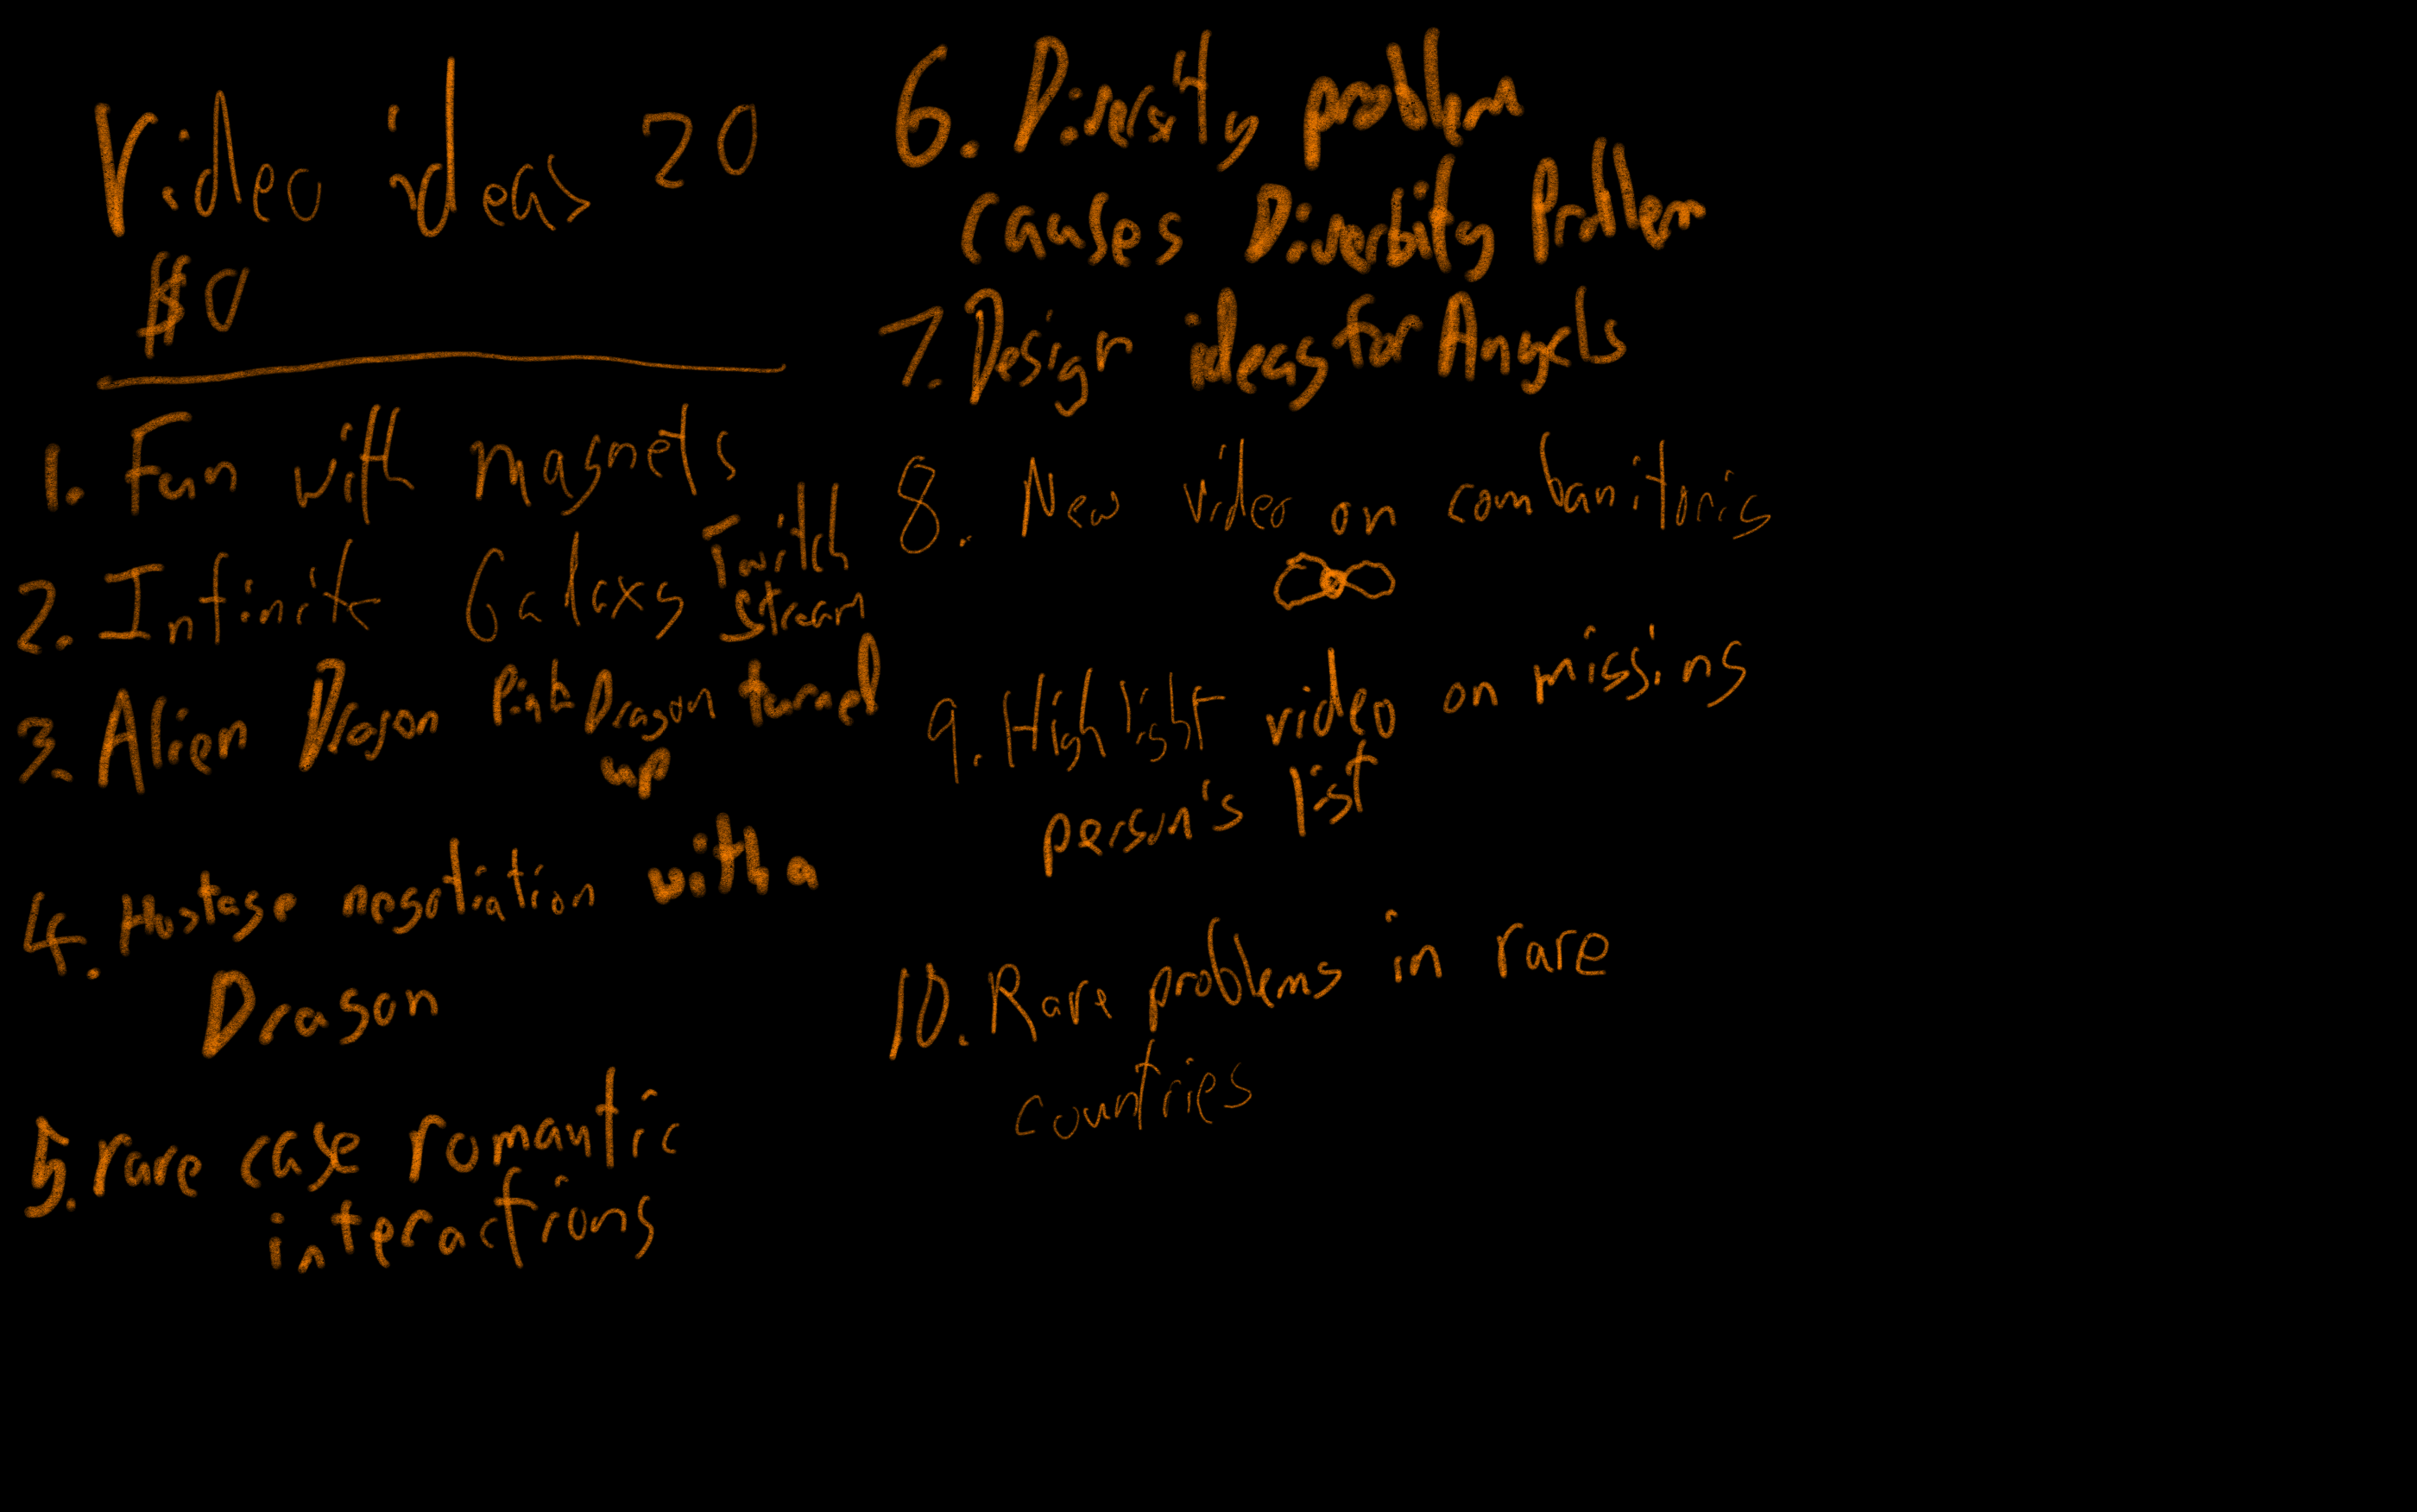 Video ideas 20
$0
1. Fun with magnets
2. Infinite Galaxy Twitch
Stream
3. Alien Dragon Pink Dragon turned
up
4. Hostage negotiation with a
Dragon
5. rare case romantic
interactions
6. Diversity problem
causes Diverbity Problem
7. Design ideas for Angels
8. New video on combanitoris
9. High light video on missing
person's list
10. Rare problems in rare
countries